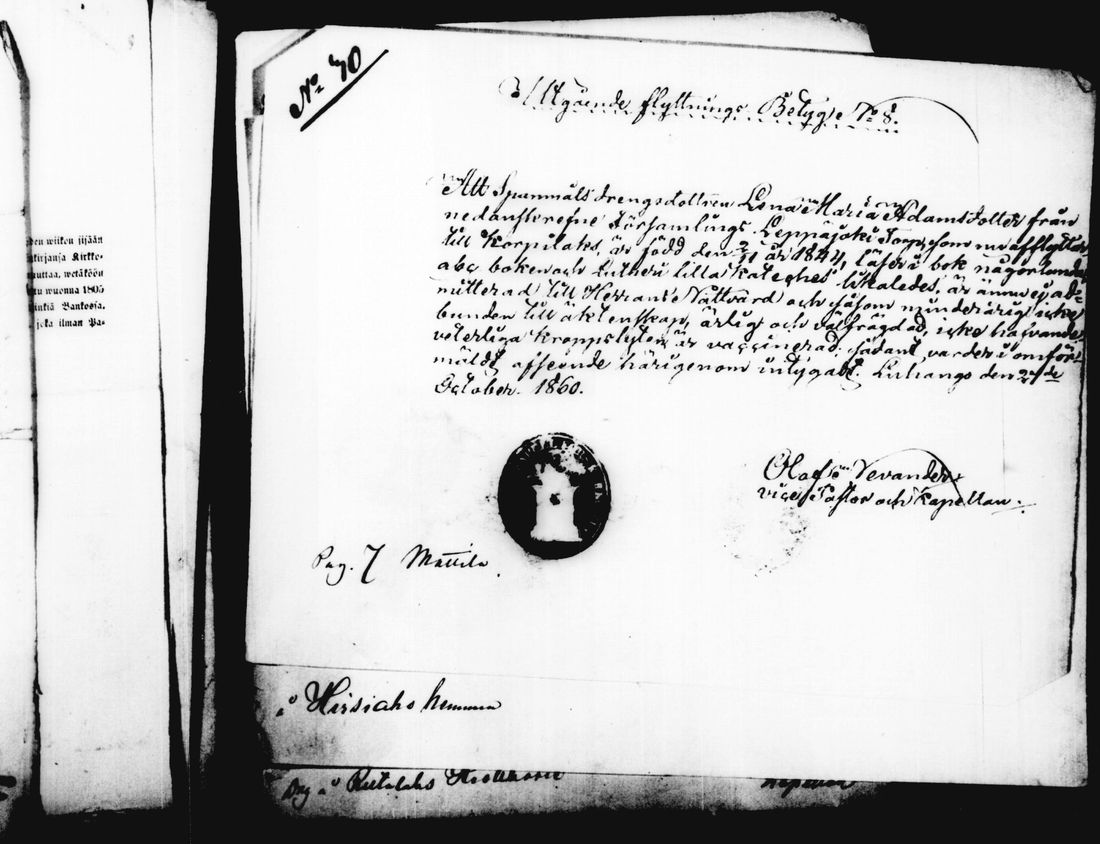 den wiikon sisään
kirjansa Kirkko-
muuttaa, wetäköön
wuonna 1805
Bankosja,
joka ilman Pa-
No 40
Utgående flyttnings Betyg No 8.
Att Spanmåls drengsdottren Lena Maria Adamsdotter från
nedanskrefne Församlings Leppäjoki Torp, som nu afflyttar
till Korpilaks, är född den 2/11 år 1844, läser i bok någorlunda
abc boken och Lutheri lilla Kateches likaledes, är ännu ej ad-
mitterad till Herrans Nattvard och såsom minderårig icke
bunden till äktenskap, ärlig och välfrägdad, icke hafvande
veterliga kroppslyten, är vaccinerad; sådant varder i omför-
mäldt afseende härigenom intygadt. Luhango den
October. 1860.
Olof Nevander
vice Pastor och Kapellan.
Pag. 7 Mattila
å Hirsiaho hemman
Pag å Rutalaks